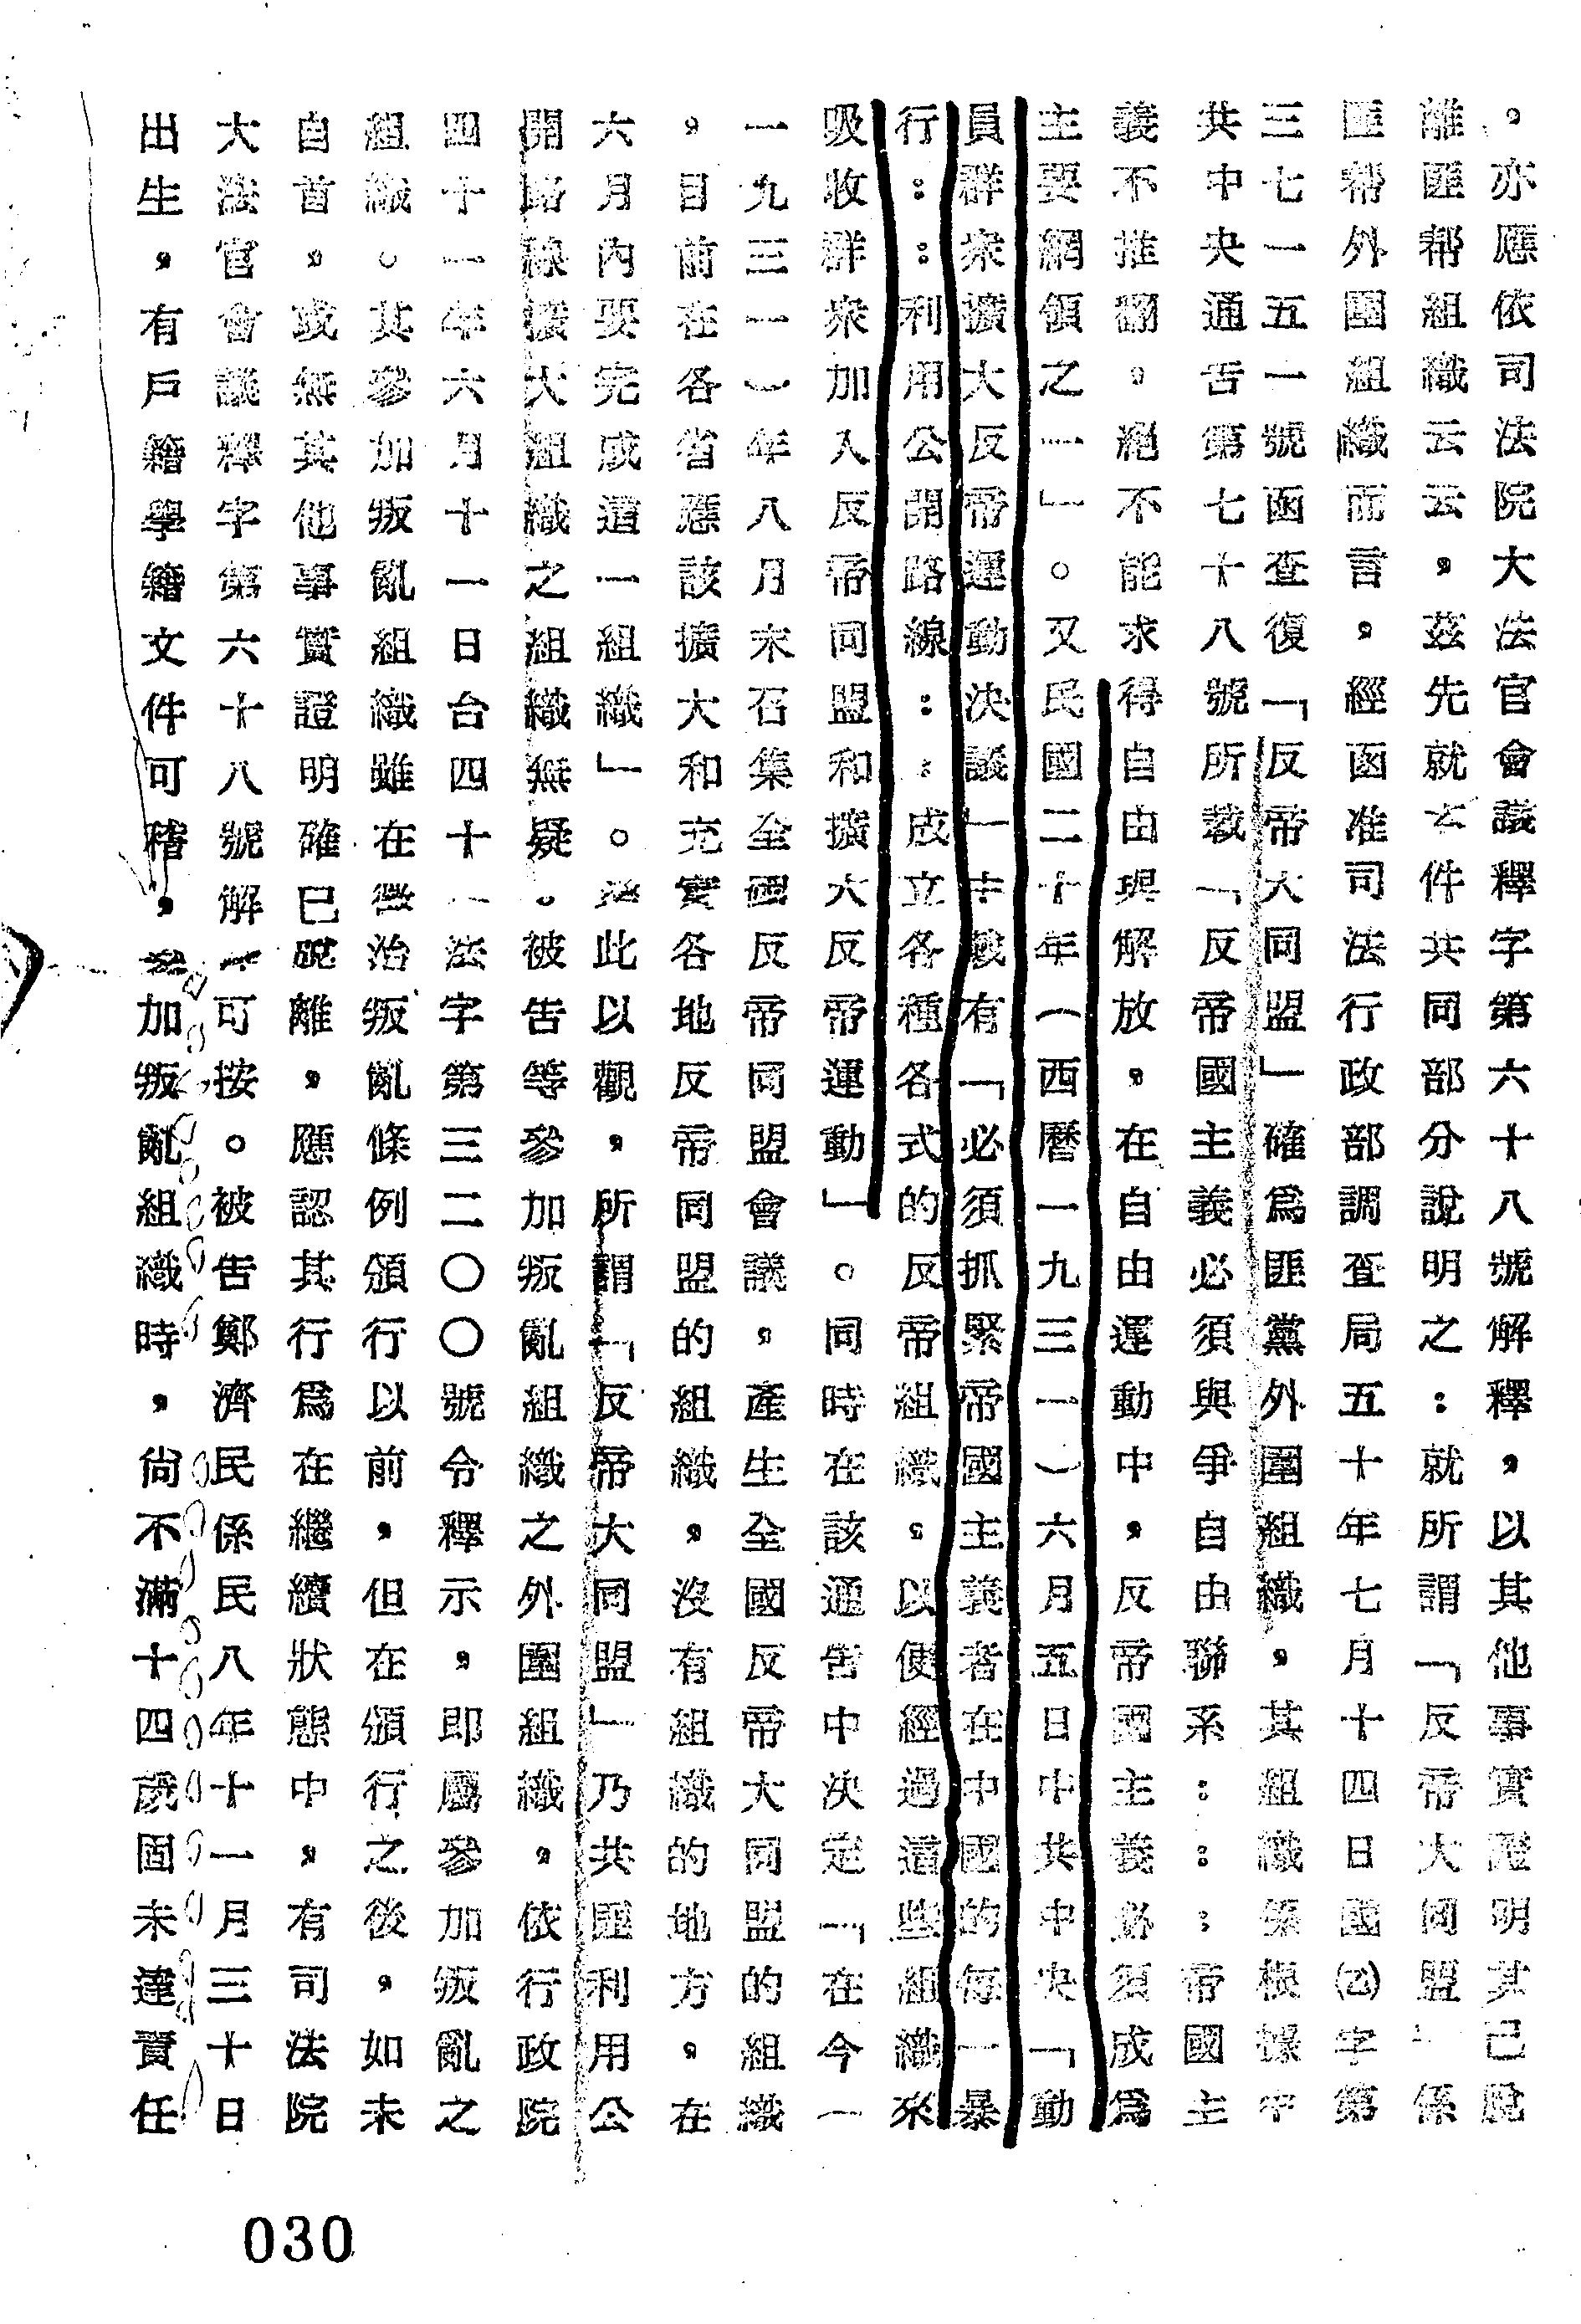 。亦應依司法院大法官會議釋字第六十八號解釋，以其他事實證明其已脫
離匪幫組織云云，茲先就云件共同部分說明之：就所謂「反帝大同盟」係
匪幫外圍組織而言，經函准司法行政部調查局五十年七月十四日國㈡字第
三七一五一號函查復「反帝大同盟」確為匪黨外圍組織，其組織係根據中
共中央通告第七十八號所載「反帝國主義必須與爭自由聯系：：：帝國主
義不推翻，絕不能求得自由與解放，在自由運動中，反帝國主義必須成為
主要網領之一」。又民國二十年（西曆一九三一）六月五日中共中央「動
員群衆擴大反帝運動決議」中載有「必須抓緊帝國主義者在中國的每一暴
行：：利用公開路線：：成立各種各式的反帝組織，以便經過這些組織來
吸收群衆加入反帝同盟和擴大反帝運動」。同時在該通告中決定「在今一
一九三一）年八月末召集全國反帝同盟會議，產生全國反帝大同盟的組織
，目前在各省應該擴大和充實各地反帝同盟的組織，沒有組織的地方，在
六月內要完成這一組織」。 此以觀，所謂「反帝大同盟」乃共匪利用公
開路線擴大組織之組織無疑。被告等參加叛亂組織之外圍組織，依行政院
四十一年六月十一日台四十一法字第三二〇〇號令釋示，即屬參加叛亂之
組織。其參加叛亂組織雖在懲治叛亂條例頒行以前，但在頒行之後，如未
自首，或無其他事實證明確已脫離，應認其行為在繼續狀態中，有司法院
大法官會議釋字第六十八號解釋可按。被告鄭濟民係民八年十一月三十日
出生，有戶籍學籍文件可稽，參加叛亂組織時，尚不滿十四歲固未達責任
030